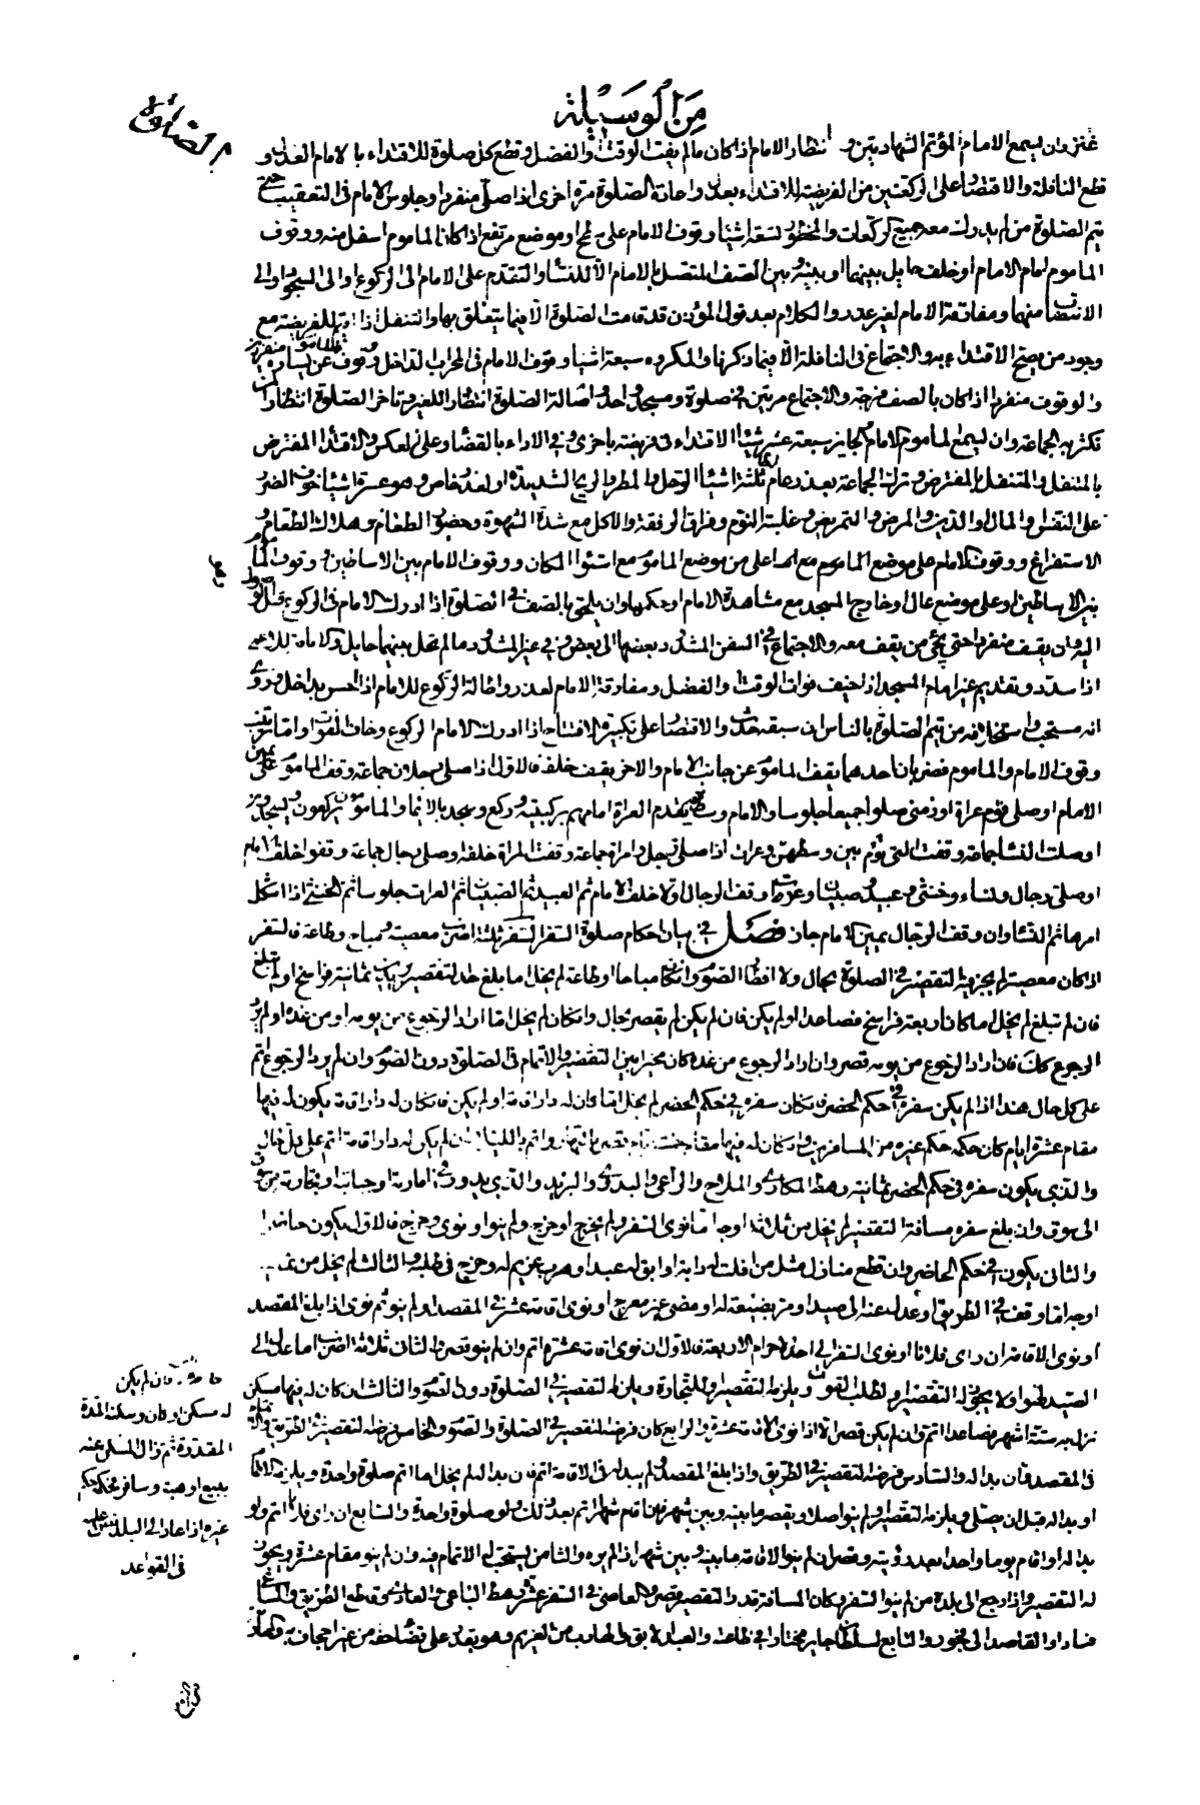 من الوسيلة
الصلوة
وان يسمع الامام المؤتم الشهادتين و انتظار الامام اذا كان مالم يفت الوقت والفضل وقطع كل صلوة للاقتداء بالامام العدل و
قطع النافلة والاقتصار على الركعتين من الفريضة للاقتداء بعدل واعادة الصلوة مرة اخرى اذا صلى منفردا وجلوس الامام فى التعقيب حتى
يتم الصلوة من لم يدرك معه جميع الركعات والمحظور تسعة اشياء وقوف الامام على سطح او موضع مرتفع اذا كان المأموم اسفل منه ووقوف
المأموم امام الامام او خلف حايل بينهما او بينه وبين الصف المتصل بالامام الا للنساء والتقدم على الامام الى الركوع او الى السجود او الى
الانتصاب منهما ومفارقة الامام لغير عذر والكلام بعد قول المؤذن قد قامت الصلوة الا فيما يتعلق بها والتنفل اذا اقيم للفريضة مع
وجود من يصح الاقتداء به والاجتماع فى النافلة الا فيما ذكرناه والمكروه سبعة اشياء وقوف الامام فى المحراب الداخل وقوف عن يساره
والوقوف منفردا اذا كان بالصف فرجة والاجتماع مرتين فى صلوة ومسجد واحد واطالة الصلوة انتظارا للغير وتاخر الصلوة انتظارا لمن
تكثر به الجماعة وان يسمع المأموم الامام والجايز سبعة عشر شيئا الاقتداء فى فريضة باخرى وفى الاداء بالقضاء وعلى العكس والاقتداء المفترض
بالمتنفل والمتنفل بالمفترض وترك الجماعة بعذر عام ثلثة اشياء الوحل والمطر والريح الشديدة او لعذر خاص وهو عشرة اشياء خوف الضرر
على النفس والمال او الدين والمرض والتمريض وغلبة النوم وفراق الرفقة والاكل مع شدة الشهوة وحضور الطعام وهلاك الطعام و
الاستفراغ ووقوف الامام على موضع المأموم مع اعلى من موضع المأموم مع استواء المكان ووقوف الامام بين الاساطين ووقوف
بين الاساطين وعلى موضع عال او خارج المسجد مع مشاهدة الامام او حكمها وان يلحق بالصف فى الصلوة اذا ادرك الامام فى الركوع قبل
اليه وان يقف منفردا حتى يجئ من يقف معه والاجتماع فى السفن المشدود بعضها الى بعض وفى غير المشدود مالم يحل بينهما حايل والامامة للاعمى
اذا سدد وتقديم غير امام المسجد اذا خيف فوات الوقت والفضل ومفارقة الامام لعذر واطالة الركوع للامام اذا احس بداخل وروى
انه مستحب واستخلافه من يتم الصلوة بالناس ان سبقه حدث والاقتصار على تكبيرة الافتتاح اذا ادرك الامام الركوع وخاف الفوت واما ترتيب
وقوف الامام والمأموم فضربان احدهما يقف المأموم عن جانب الامام والاخر يقف خلفه فالاول اذا صلى رجلان جماعة وقف المأموم على يمين
الامام او صلى قوم عراة اوزمنى صلوا جميعا جلوسا والامام وسطهم يتقدم العراة امامهم بركبتيه وركع وسجد بالايماء والمأمومون يركعون ويسجدون
او صلت النساء جماعة وقفت التى تؤم بهن وسطهن وعراة اذا صلى رجل وامرأة جماعة وقفت المرأة خلفه وصلى رجال جماعة وقفوا خلف الامام
او صلى رجال ونساء وخنثى وعبيد وصبيان وعراة وقف الرجال اولا خلف الامام ثم العبيد ثم الصبيان ثم العراة جلوسا ثم الخنثى اذا اشكل
امرها ثم النساء وان وقف الرجال يمين الامام جاز فصل فى بيان احكام صلوة السفر السفر ثلثة اضرب معصية ومباح وطاعة فالسفر
اذا كان معصية لم يجز فيه التقصير فى الصلوة بحال ولا افطار الصوم وان كان مباحا او طاعة لم يخل اما بلغ حد التقصير ثمانية فراسخ او لم يبلغ
فان لم تبلغ لم يخل اما كان اربعة فراسخ فصاعدا او لم يكن فان لم يكن لم يقصر بحال وان كان لم يخل اما اراد الرجوع من يومه او من غده او لم يرد
الرجوع كك فان اراد الرجوع من يومه قصر وان اراد الرجوع من غده كان مخيرا بين التقصير والاتمام فى الصلوة دون الصوم وان لم يرد الرجوع اتم
على كل حال هذا اذا لم يكن سفره فى حكم الحضر فان كان سفره فى حكم الحضر لم يخل اما كان له دار اقامة او لم يكن فان كان له دار اقامة يكون له فيها
مقام عشرة ايام كان حكمه حكم غيره من المسافرين وان كان له فيها مقام خمسة قصر بالنهار واتم بالليل وان لم يكن له دار اقامة اتم على كل حال
والذى يكون سفره فى حكم الحضر ثمانية رهط المكارى والملاح والراعى والبدوى والبريد والذى يدور فى امارته او جبايته او تجارته من سوق
الى سوق وان بلغ سفره مسافة التقصير لم يخل من ثلاثة اوجه اما نوى السفر ولم يخرج او خرج ولم ينو او نوى وخرج فالاول يكون حاضرا
والثانى يكون فى حكم الحاضر وان قطع منازل مثل من افلت له دابة او ابق له عبد او هرب غريم له وخرج فى طلبه والثالث لم يخل من
اوجه اما وقف فى الطريق او عدل عنه الى صيد او مر بضيعة له او مضى غير معرج او نوى اقامة عشرة فى المقصد او لم ينو ثم نوى اذا بلغ المقصد
او نوى الاقامة ان راى فلانا او نوى السفر فى احد الحرم الاربعة فالاول ان نوى اقامة عشرة اتم وان لم ينو قصر والثانى ثلاثة اضرب اما عدل الى
الصيد لهوا ولا يجوز له التقصير او لطلب القوت ويلزمه التقصير او للتجارة ويلزمه التقصير فى الصلوة دون الصوم والثالث ان كان له فيها مسكن
نزل به ستة اشهر فصاعدا اتم وان لم يكن قصر الا اذا نوى الاقامة عشرة والرابع كان فرضه التقصير فى الصلوة والصوم والخامس فرضه التقصير فى الطريق
فى المقصد فان بدا له والسادس فرضه التقصير فى الطريق واذا بلغ المقصد ولم يبد له فى الاقامة اتم فان بدا له لم يخل اما اتم صلوة واحدة ويلزمه الاتمام
او بدا له قبل ان يصلى ويلزمه التقصير ولم ينو اصلا ويقصر ما بينه وبين شهر فان اقام شهرا اتم بعد ذلك ولو صلوة واحدة والسابع ان راى فلانا اتم ولو
بدا له او اقام يوما واحدا بعد رؤيته وقصر ان لم ينو الاقامة ما بينه وبين شهر اذا لم يره والثامن يستحب له الاتمام فيه وان لم ينو مقام عشرة ويجوز
له التقصير واذا رجع الى بلدة من لم ينو السفر وكان المسافة قدر التقصير قصر والعاصى فى السفر عشرة رهط الباغى والعادى وقاطع الطريق والساعى
فسادا والقاصد الى فجور والتابع لسلطان جاير مختارا فى طاعته والعبد الابق والهارب من الغريم وهو يقدر على قضاء حقه من غير اجحاف به
فان لم يكن
له مسكن او كان وسكنه المدة
المقدرة ثم زال الملك عنه
ببيع او هبة وسافر فحكمه حكم
غيره اذا عاد الى البلد
فى القواعد